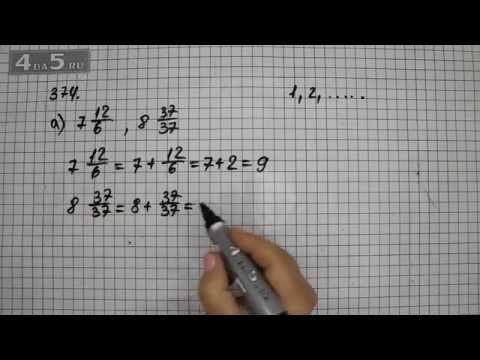 4DA5.RU
374.
1, 2, .....
а) 7 12/6 , 8 37/37
7 12/6 = 7 + 12/6 = 7 + 2 = 9
8 37/37 = 8 + 37/37 =